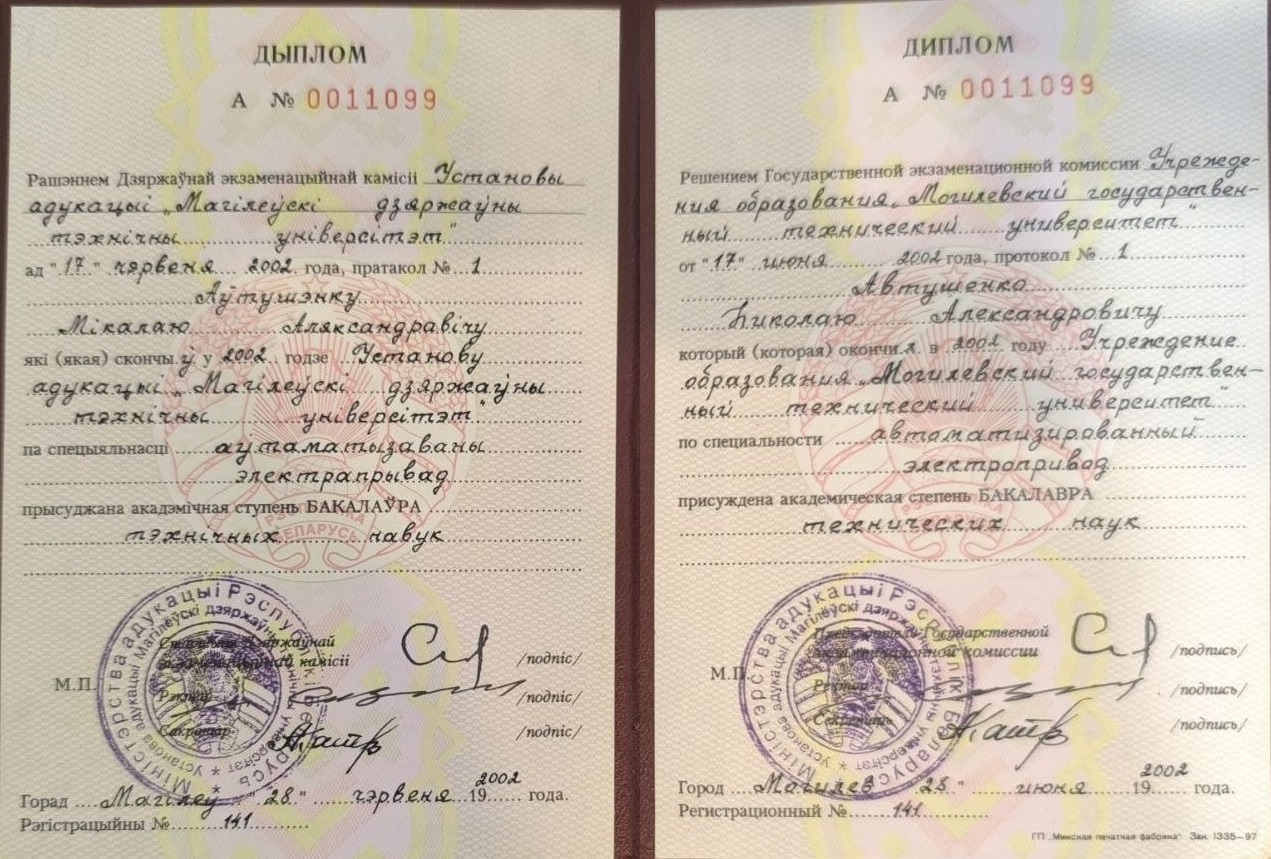 ДЫПЛОМ
А № 0011099
Рашэннем Дзяржаўнай экзаменацыйнай камісіі Установы
адукацыі „Магілеўскі дзяржаўны
тэхнічны універсітэт"
ад "17" чэрвеня 2002 года, пратакол № 1
Аўтушэнку
Мікалаю Аляксандравічу
які (якая) скончыў у 2002 годзе Установу
адукацыі „Магілеўскі дзяржаўны
тэхнічны універсітэт"
па спецыяльнасці аўтаматызаваны
электрапрывад
прысуджана акадэмічная ступень БАКАЛАЎРА
тэхнічных навук
РЭСПУБЛІКА
БЕЛАРУСЬ
Міністэрства адукацыі Рэспублікі Беларусь
Установа адукацыі Магілёўскі дзяржаўны тэхнічны універсітэт
Старшыня Дзяржаўнай
экзаменацыйнай камісіі /подпіс/
М.П. Рэктар /подпіс/
Сакратар /подпіс/
Горад Магілеў "28" чэрвеня 19 2002 года.
Рэгістрацыйны № 141
ДИПЛОМ
А № 0011099
Решением Государственной экзаменационной комиссии Учрежде-
ния образования „Могилевский государствен-
ный технический университет"
от "17" июня 2002 года, протокол № 1
Автушенко
Николаю Александровичу
который (которая) окончил в 2002 году Учреждение
образования „Могилевский государствен-
ный технический университет"
по специальности автоматизированный
электропривод
присуждена академическая степень БАКАЛАВРА
технических наук
РЭСПУБЛІКА
БЕЛАРУСЬ
Міністэрства адукацыі Рэспублікі Беларусь
Установа адукацыі Магілёўскі дзяржаўны тэхнічны універсітэт
Председатель Государственной
экзаменационной комиссии /подпись/
М.П. Ректор /подпись/
Секретарь /подпись/
Город Могилев "28" июня 19 2002 года.
Регистрационный № 141
ГП „Минская печатная фабрика" Зак. 1335–97